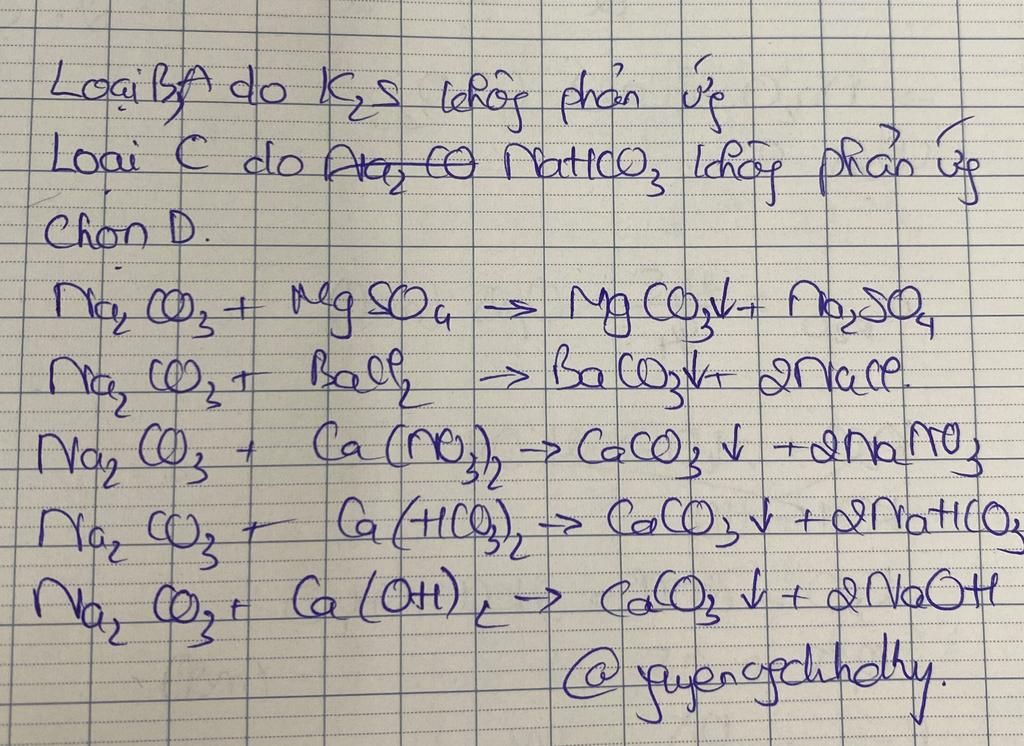 Loại B, A do K₂S không phản ứng
Loại C do Na₂CO NaHCO₃ không phản ứng
Chọn D.
Na₂CO₃ + MgSO₄ → MgCO₃↓ + Na₂SO₄
Na₂CO₃ + BaCl₂ → BaCO₃↓ + 2NaCl.
Na₂CO₃ + Ca(NO₃)₂ → CaCO₃↓ + 2NaNO₃
Na₂CO₃ + Ca(HCO₃)₂ → CaCO₃↓ + 2NaHCO₃
Na₂CO₃ + Ca(OH)₂ → CaCO₃↓ + 2NaOH